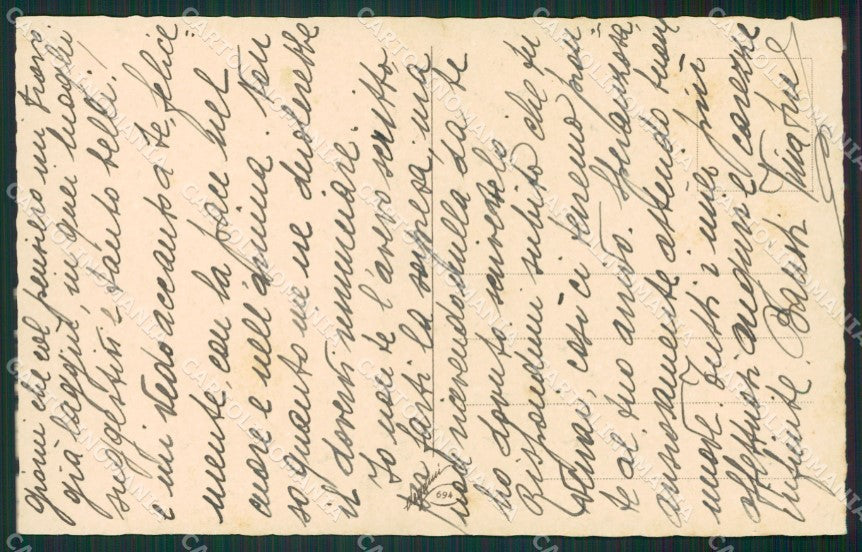 giorni che col pensiero mi trovo
già laggiù, in quei luoghi
suggestivi e tanto belli,
e mi vedo accanto a te, felice
mente, con la pace nel
cuore e nell'anima. Tu
sa quanto me ne dorrebbe
il dovervi rinunciare.
Io non te l'avevo scritto
per farti la sorpresa, ma
non ricevendo nulla da te
ho dovuto scrivertelo.
Rispondimi subito che tu
così ci terremo pron
te al tuo arrivo. Speranzosa,
ansiosamente attendo tue
nuove. Tutti i miei più
affettuosi auguri e carezze
infinite. Bacioni
694
CARTOLINOMANIA